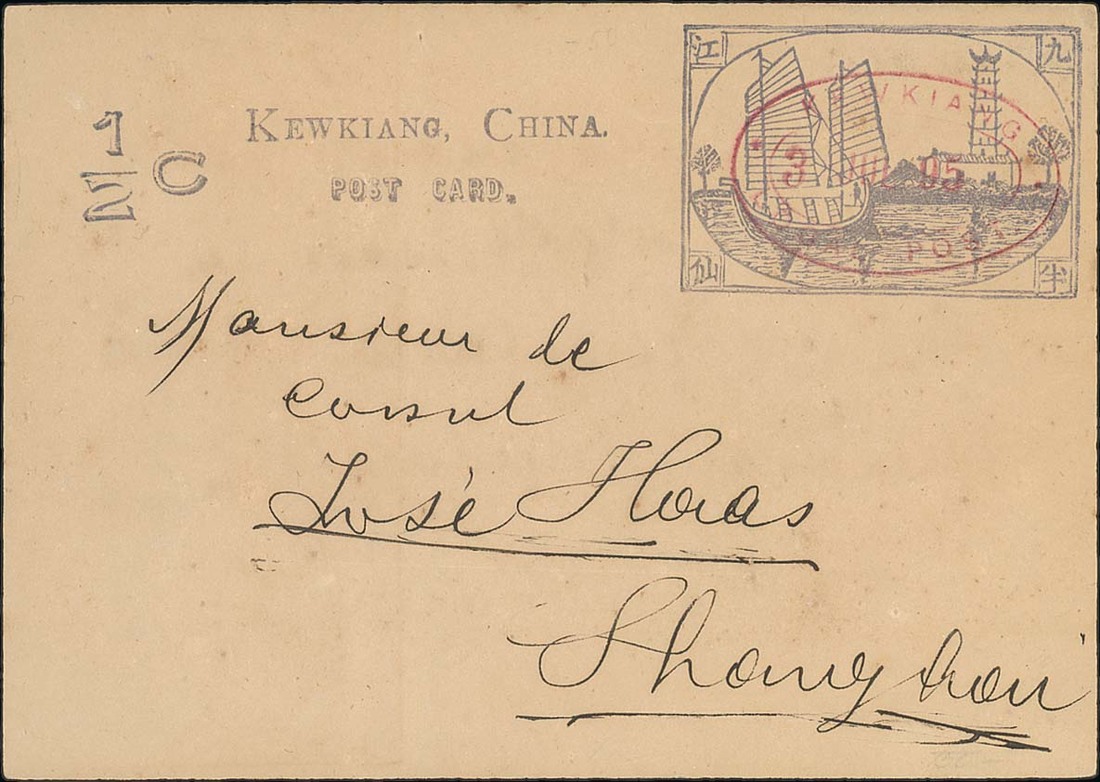 1/2 C
KEWKIANG, CHINA.
POST CARD.
江 九
仙 半
KEWKIANG
3 JUL 95
LOCAL POST
Monsieur de
Consul
José Haas
Shanghai